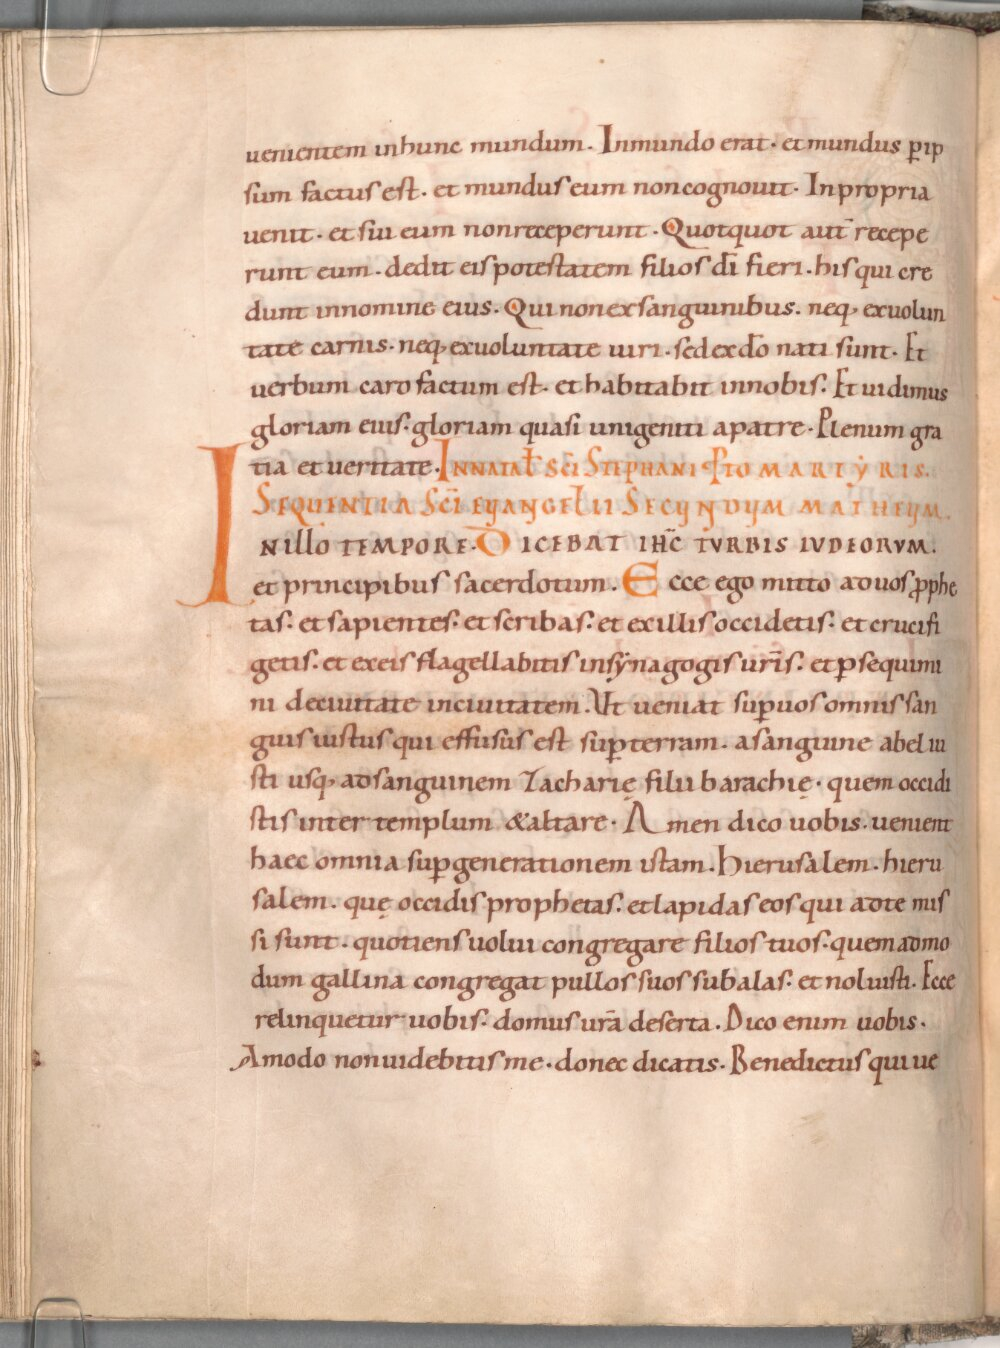 uenientem inhunc mundum. Inmundo erat. et mundus p̲ ip
sum factus est. et mundus eum non cognouit. In propria
uenit. et sui eum non receperunt. Quotquot aut̄ recepe
runt eum. dedit eis potestatem filios dī fieri. his qui cre
dunt in nomine eius. Qui non ex sanguinibus. neq; ex uolun
tate carnis. neq; ex uoluntate uiri. sed ex dō nati sunt. Et
uerbum caro factum est. et habitabit in nobis. Et uidimus
gloriam eius. gloriam quasi unigeniti a patre. Plenum gra
tia et ueritate. IN NATAƚ SC̄I STEPHANI PTOMARTYRIS.
SEQUENTIA SC̄I EUANGELII SECUNDUM MATHEUM.
IN ILLO TEMPORE. DICEBAT IHC̄ TURBIS IUDEORUM.
et principibus sacerdotum. Ecce ego mitto ad uos ꝓphe
tas. et sapientes. et scribas. et ex illis occidetis. et crucifi
getis. et ex eis flagellabitis in synagogis ur̄is. et ꝑsequimi
ni de ciuitate in ciuitatem. Ut ueniat suꝑ uos omnis san
guis iustus qui effusus est suꝑ terram. a sanguine abel iu
sti usq; ad sanguinem Zacharię filii barachię. quem occidi
stis inter templum & altare. Amen dico uobis. uenient
haec omnia suꝑ generationem istam. Hierusalem. hieru
salem. quę occidis prophetas. et lapidas eos qui ad te mis
si sunt. quotiens uolui congregare filios tuos. quem admo
dum gallina congregat pullos suos sub alas. et noluisti. Ecce
relinquetur uobis. domus ur̄a deserta. Dico enim uobis.
Amodo non uidebitis me. donec dicatis. Benedictus qui ue